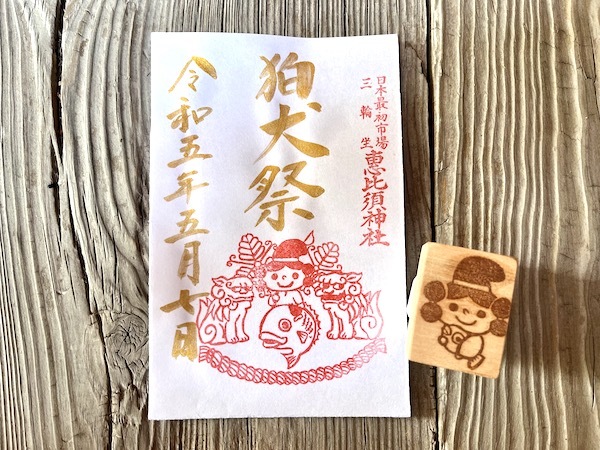 日本最初市場
三輪坐恵比須神社
狛犬祭
令和五年五月七日